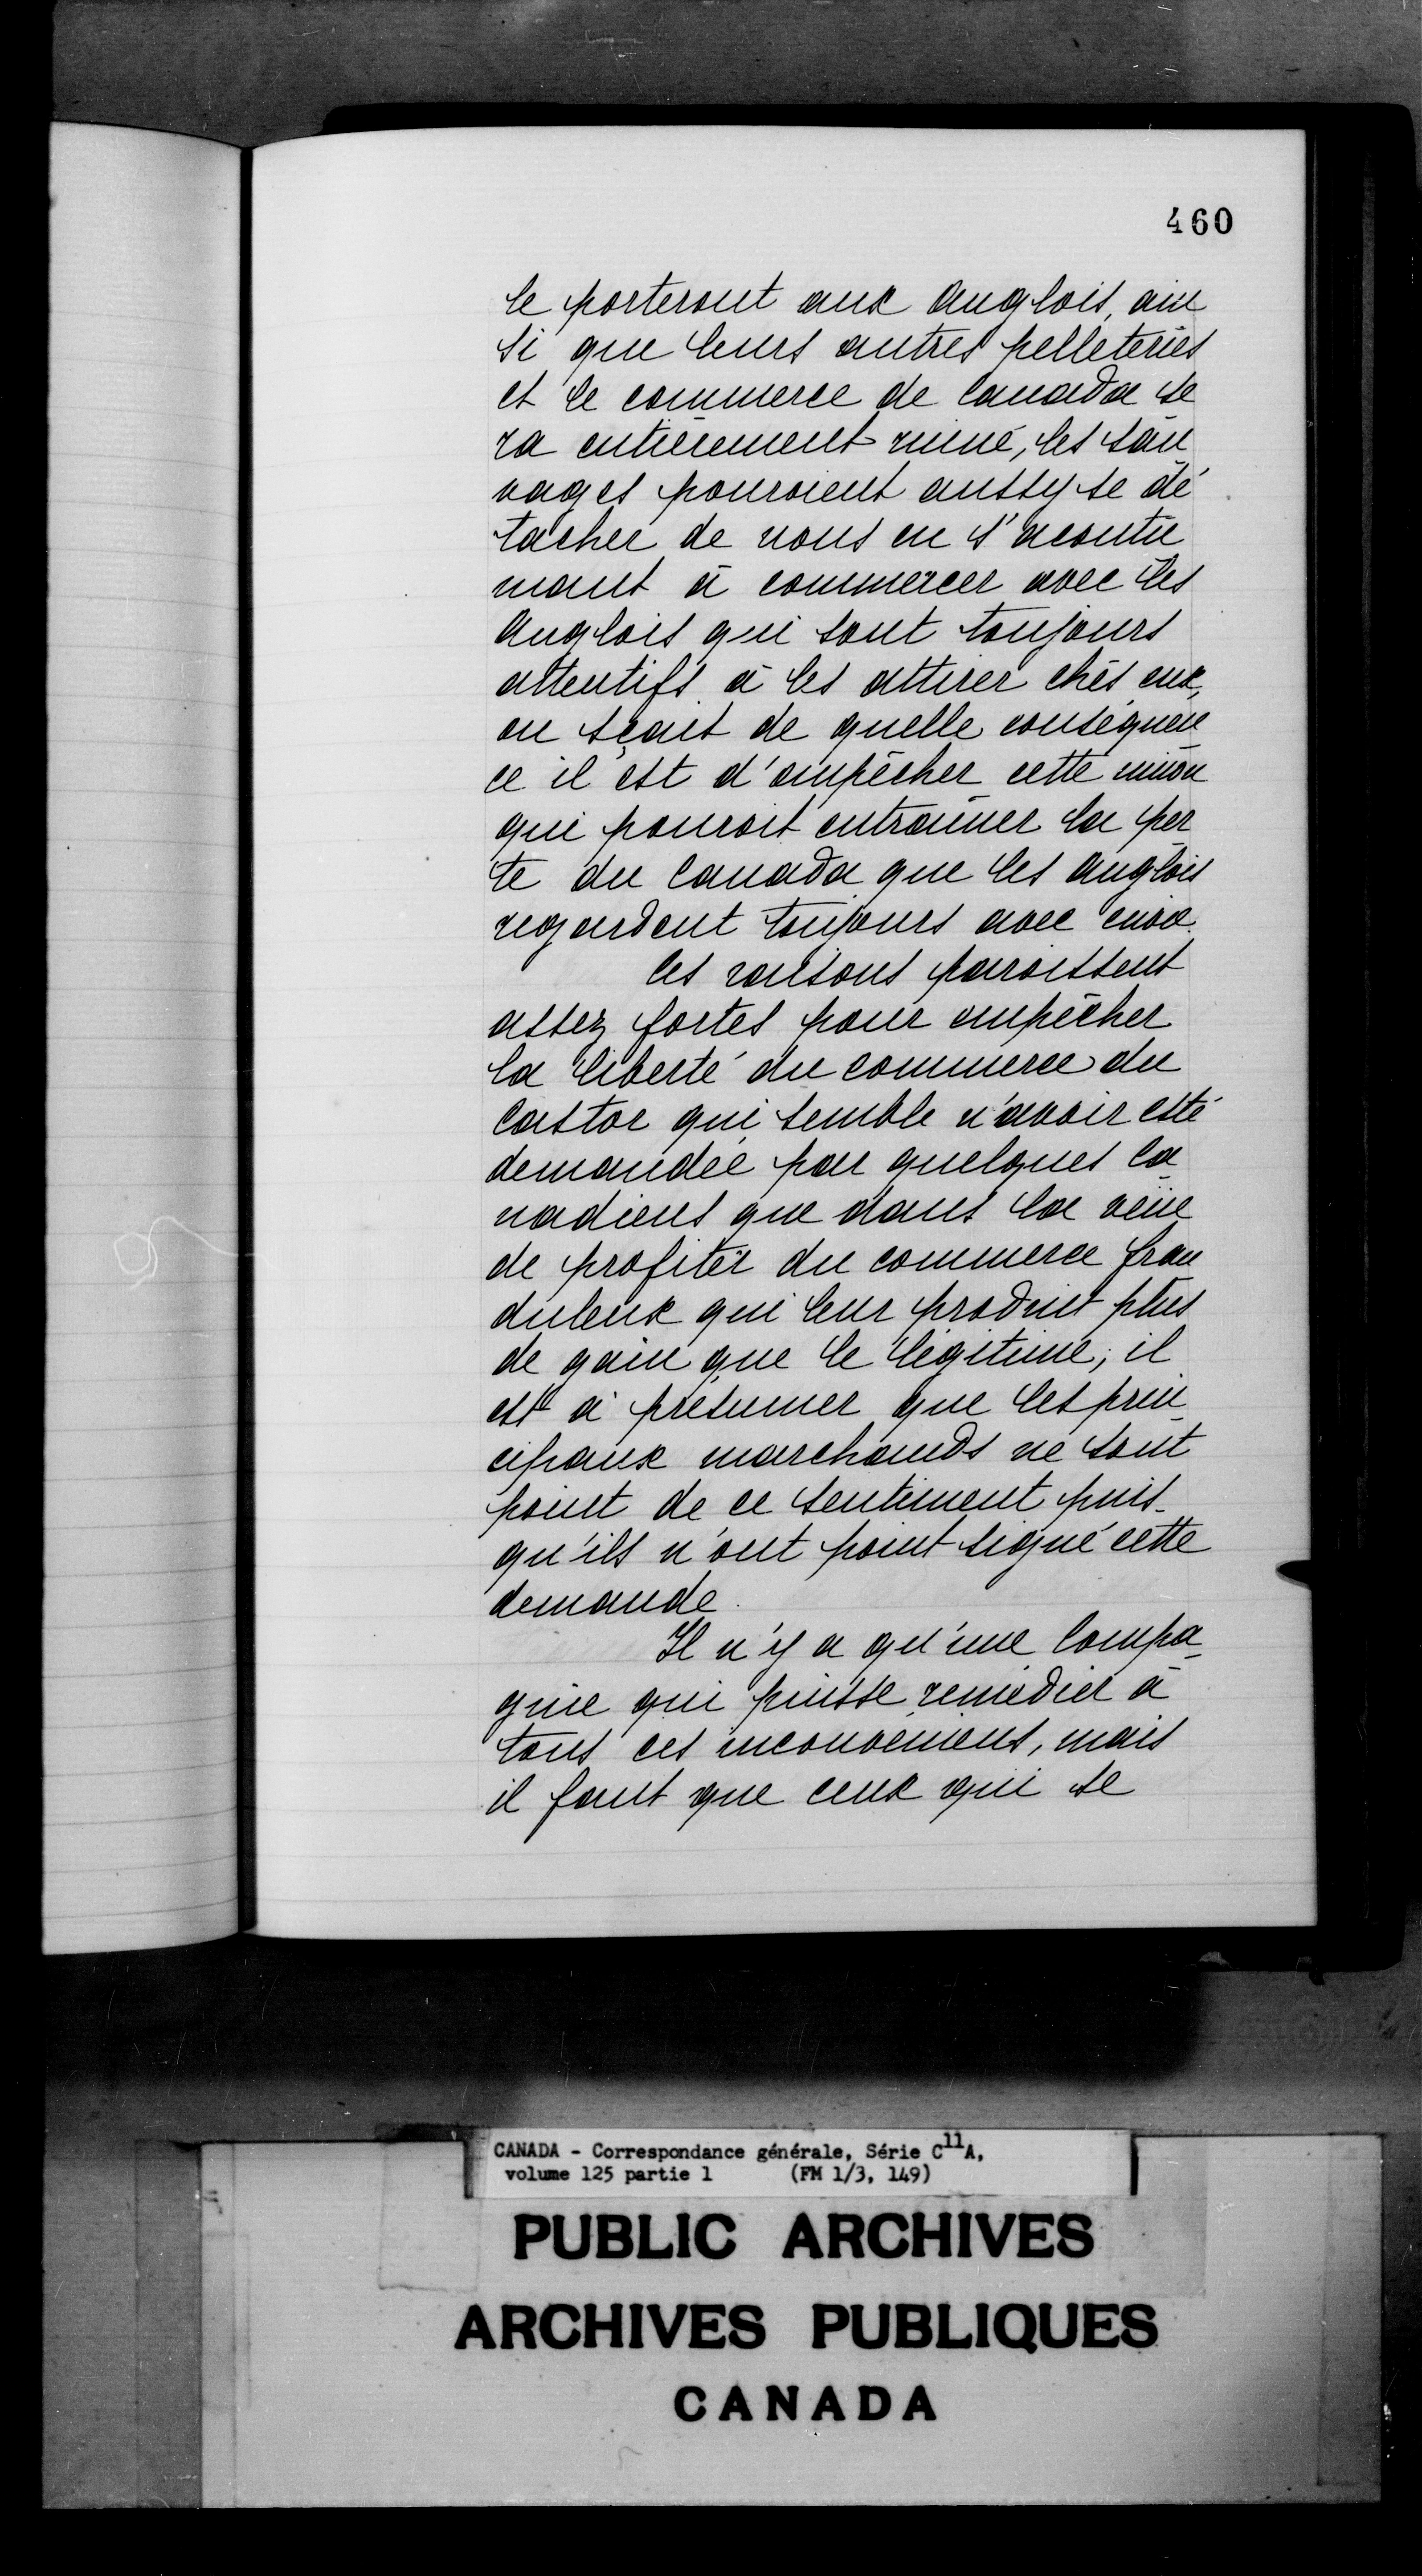 460
le porteront aux Anglois, ain
si que leurs autres pelleteries
et le commerce de Canada se
ra entièrement ruiné, les sau
vages pouroient aussy se dé
tacher de nous en s'acoutu
mant à commercer avec les
Anglois qui sont toujours
attentifs à les attirer chés eux,
on sçait de quelle conséquen
ce il est d'empêcher cette union
qui pouroit entrainer la per
te du Canada que les Anglois
regardent toujours avec envie.
Ces raisons paroissent
assez fortes pour empêcher
la liberté du commerce du
Castor qui semble n'avoir esté
demandée par quelques Ca
nadiens que dans la veüe
de profiter du commerce frau
duleux qui leur produit plus
de gain que le légitime; il
est à présumer que les prin
cipaux marchands ne sont
point de ce sentiment puis-
qu'ils n'ont point signé cette
demande.
Il n'y a qu'une Compa-
gnie qui puisse remedier à
tous ces inconveniens, mais
il faut que ceux qui se
CANADA - Correspondance générale, Série C11A,
volume 125 partie 1 (FM 1/3, 149)
PUBLIC ARCHIVES
ARCHIVES PUBLIQUES
CANADA